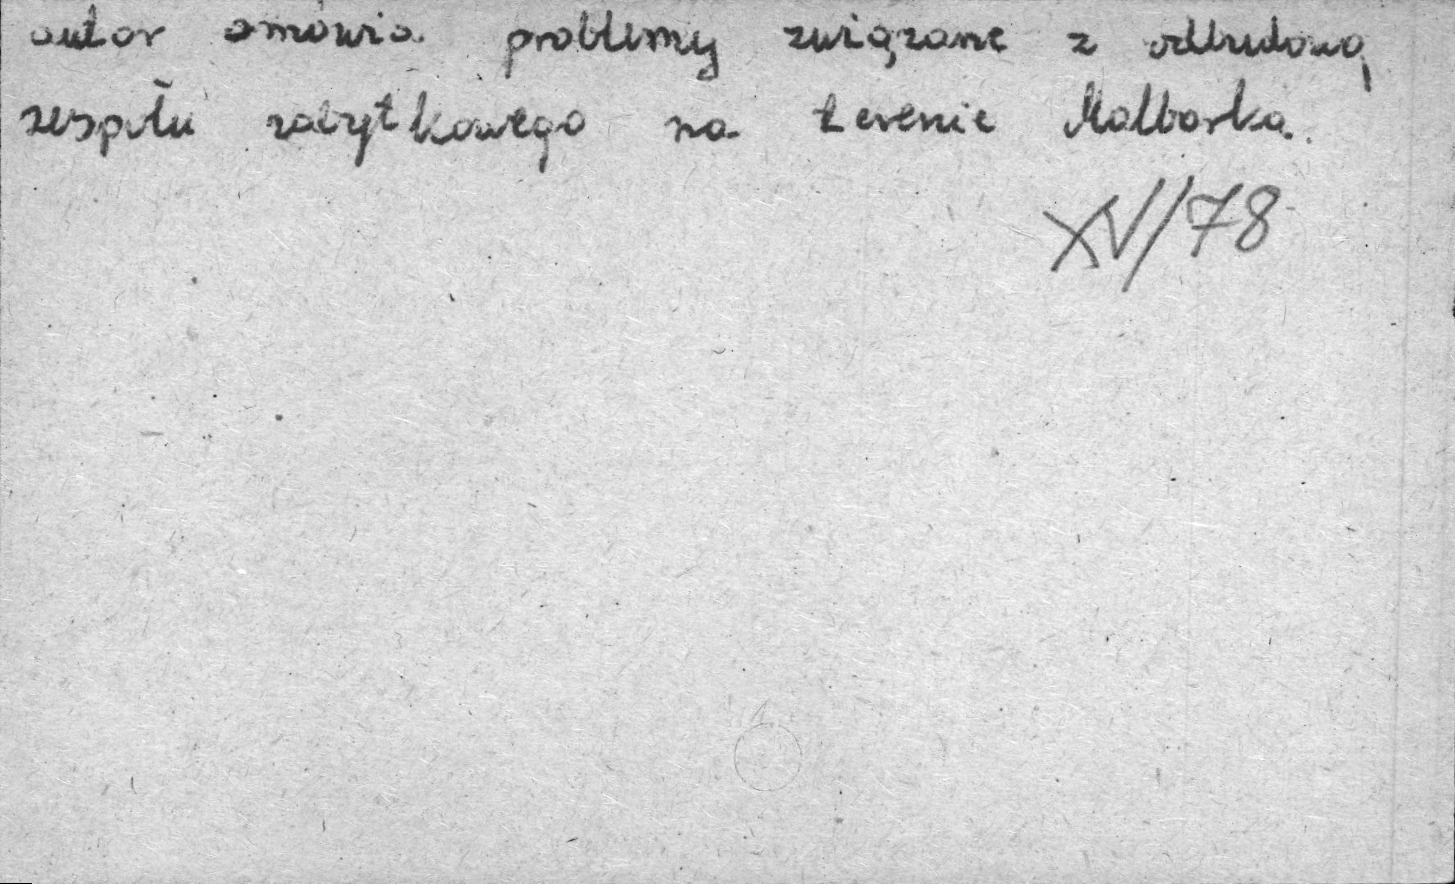 autor omówia problemy związane z odbudową
zespołu zabytkowego na terenie Malborka.
XV/78